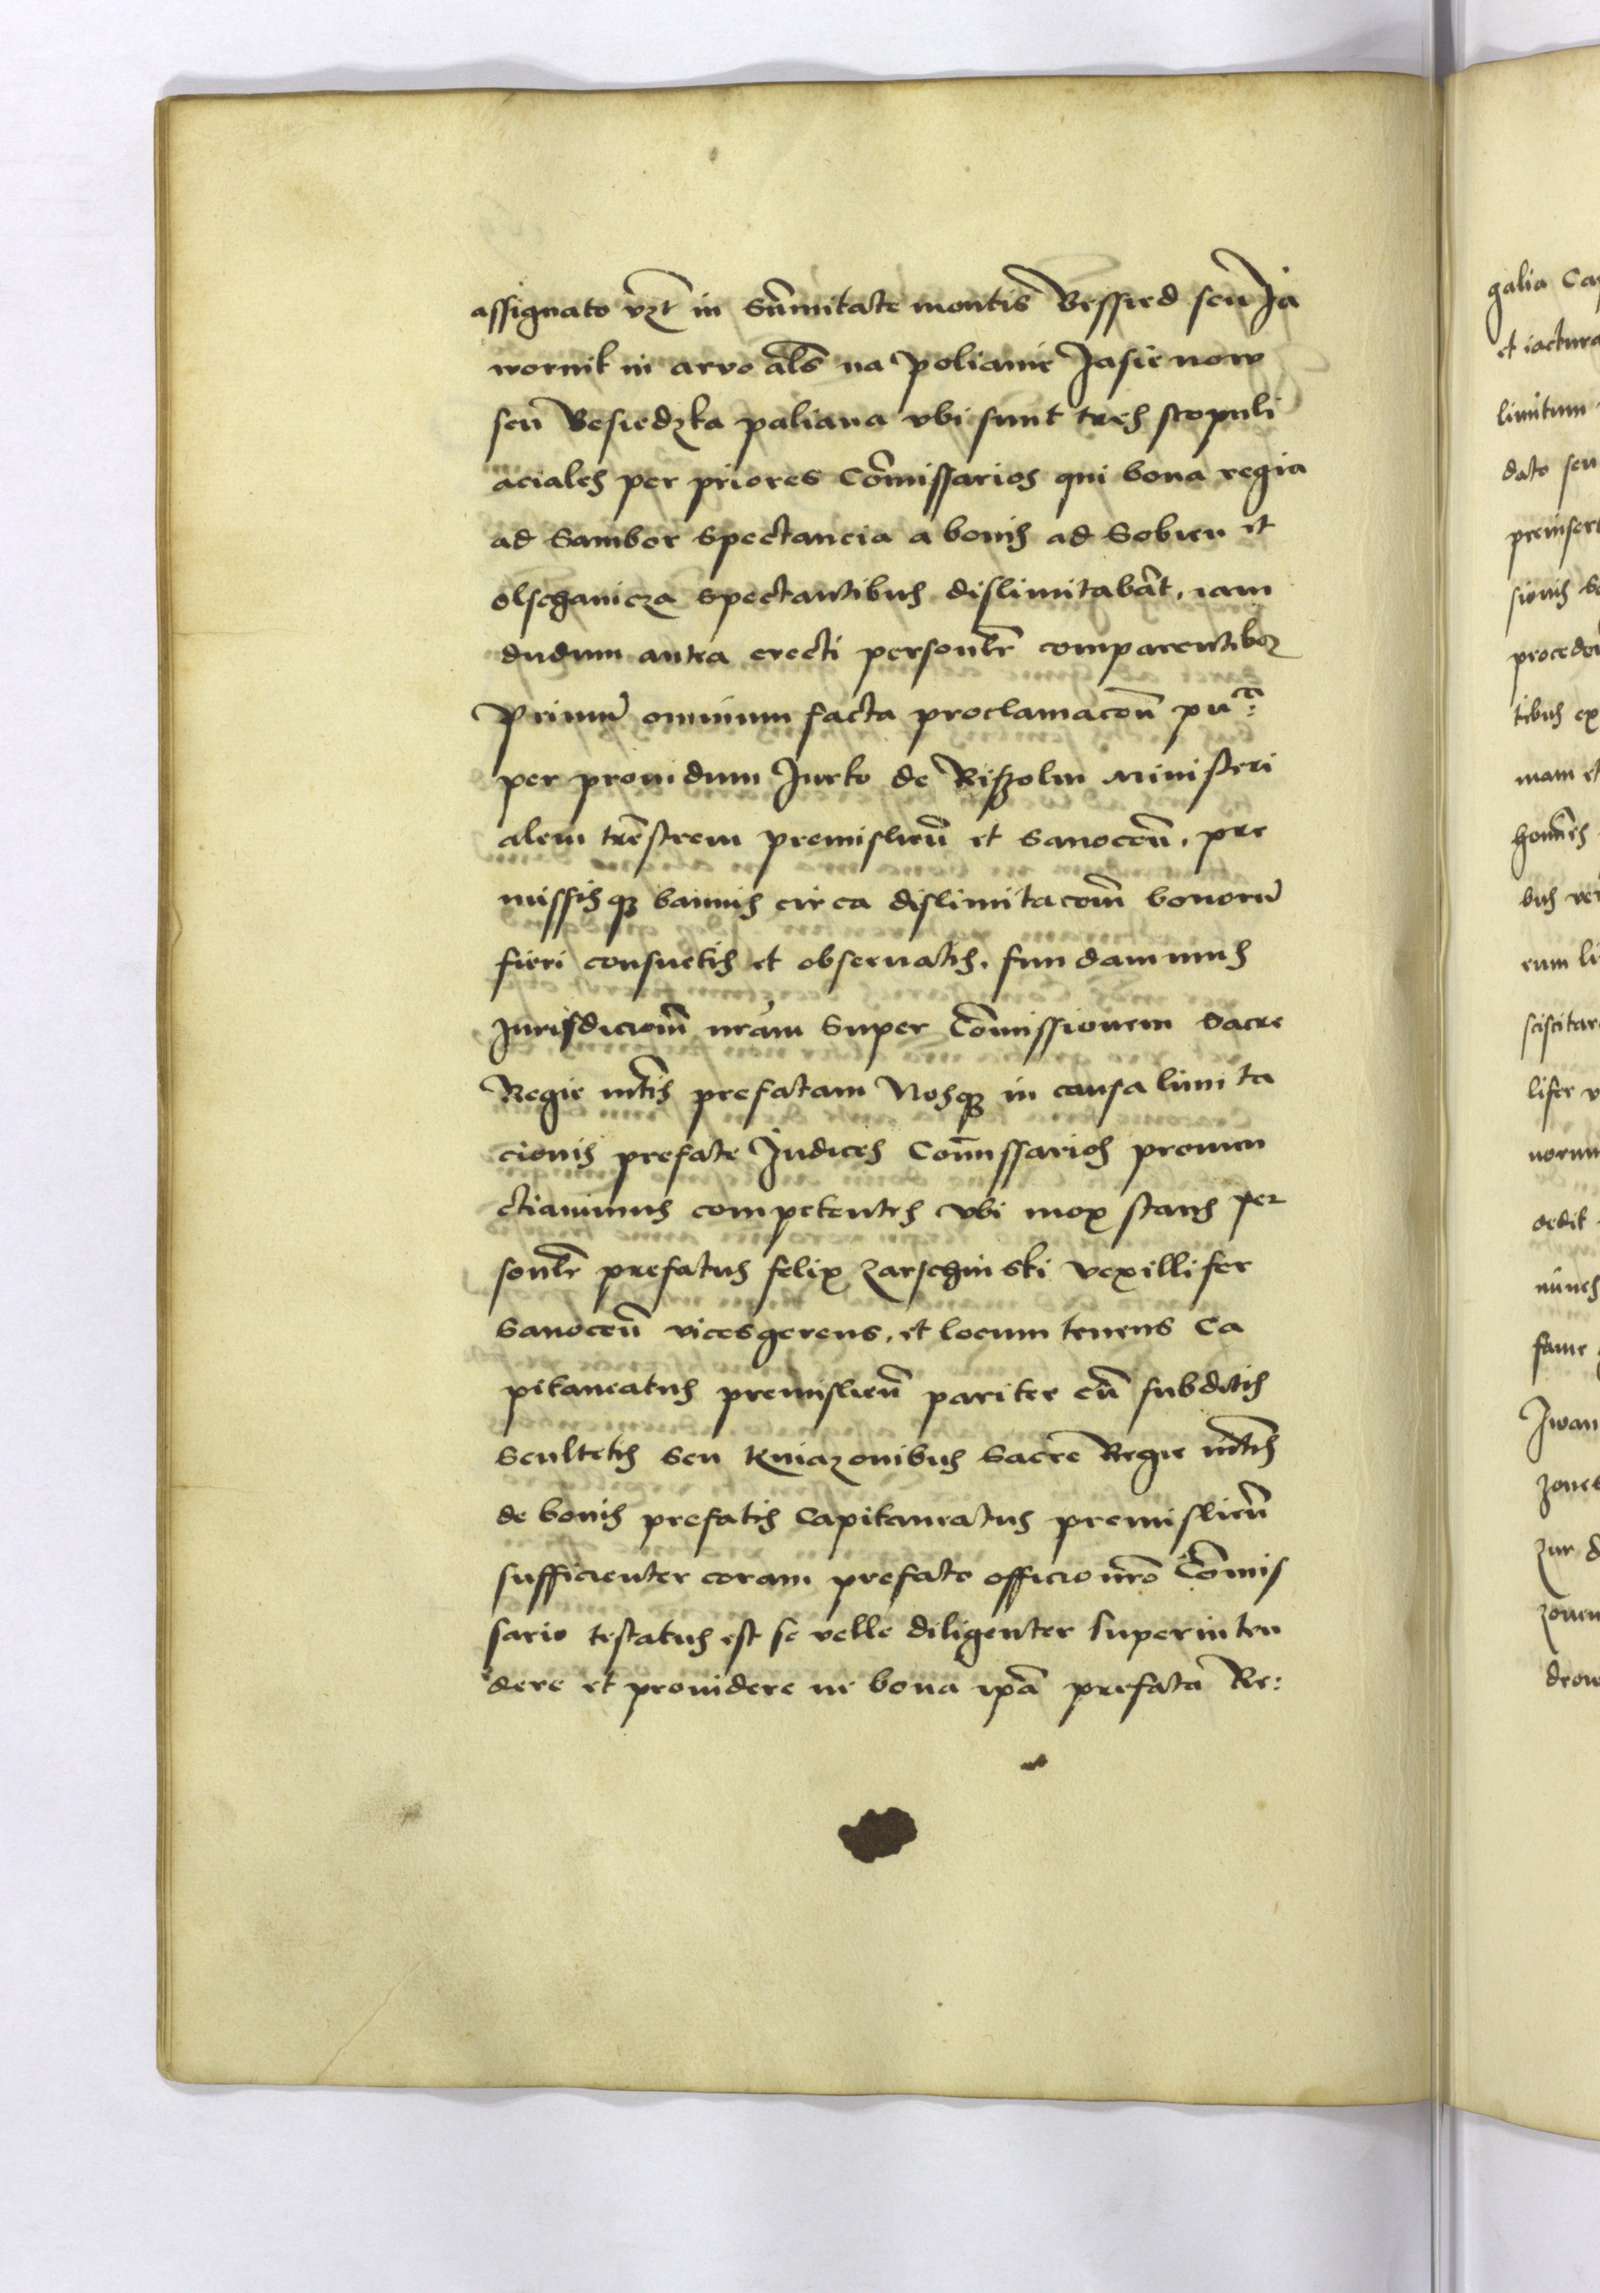 assignato vzt in Sumitate montis Bessied seu Ja
wornik in arvo als na Polianie Jasienow
seu Besiedzka paliana vbi sunt tres scopuli
aciales per priores Comissarios qui bona regia
ad Sambor Spectancia a bonis ad Sobien et
olschanicza Spectantibus dislimitabat, iam
dudum antea erecti personlr comparentibus
Primu omnium facta proclamacon
per prouidum Jurko de Ministeri
alem trestrem premislien et Sanocen, pre
missisque bannis circa dislimitacom bonoru
fieri consuetis et obseruatis, fundamus
Jurisdiciom nram Super Comissionem Sacre
Regie mtis prefatam Nosque in causa limita
cionis prefate Judices Comissarios pronun
ctiauimus competentes vbi mox stans per
sonlr prefatus felix Zarschinski vexillifer
Sanocen vicesgerens, et locum tenens Ca
pitaneatus premislien pariter cu subditis
Scultetis Seu Kniazonibus Sacre Regie mtis
de bonis prefatis Capitaneatus premislien
sufficienter coram prefato officio nro Comis
sario testatus est se velle diligenter Superinten
dere et prouidere ne bona ipa prefata Re:
galia Ca
et iactura
limitum
dato seu
preinsert
sionis
procede
tibus ex
mam et
homines
bus
eum li
sciscitar
lifer v
norum
dedit
fame
Jwan
zones